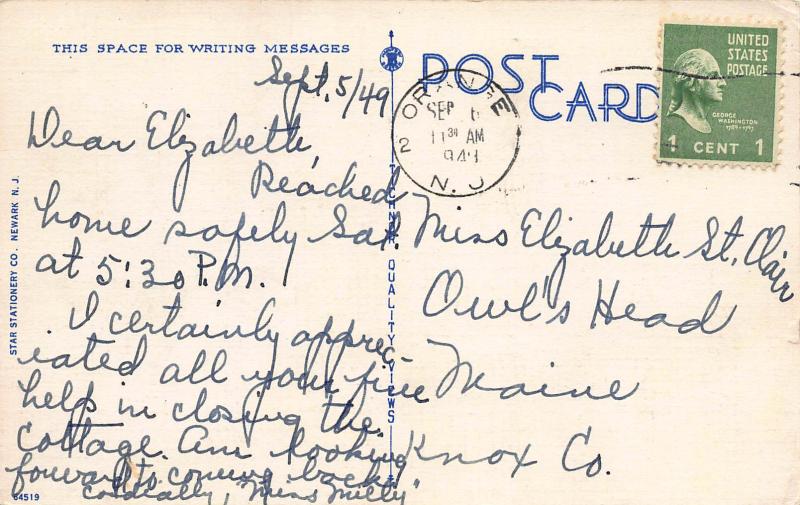 THIS SPACE FOR WRITING MESSAGES
POST CARD
UNITED
STATES
POSTAGE
GEORGE
WASHINGTON
1789-1797
1 CENT 1
ORANGE
2
SEP 6
11 30 AM
1949
N. J.
Sept. 5/49
Dear Elizabeth,
Reached
home safely Sat.
at 5:30 P.M.
I certainly apprec
iated all your fine
help in closing the
cottage. Am looking
forward to coming back.
Cordially, "Miss Milly"
Miss Elizabeth St. Clair
Owl's Head
Maine
Knox Co.
STAR STATIONERY CO. NEWARK N. J.
QUALITY VIEWS
64519